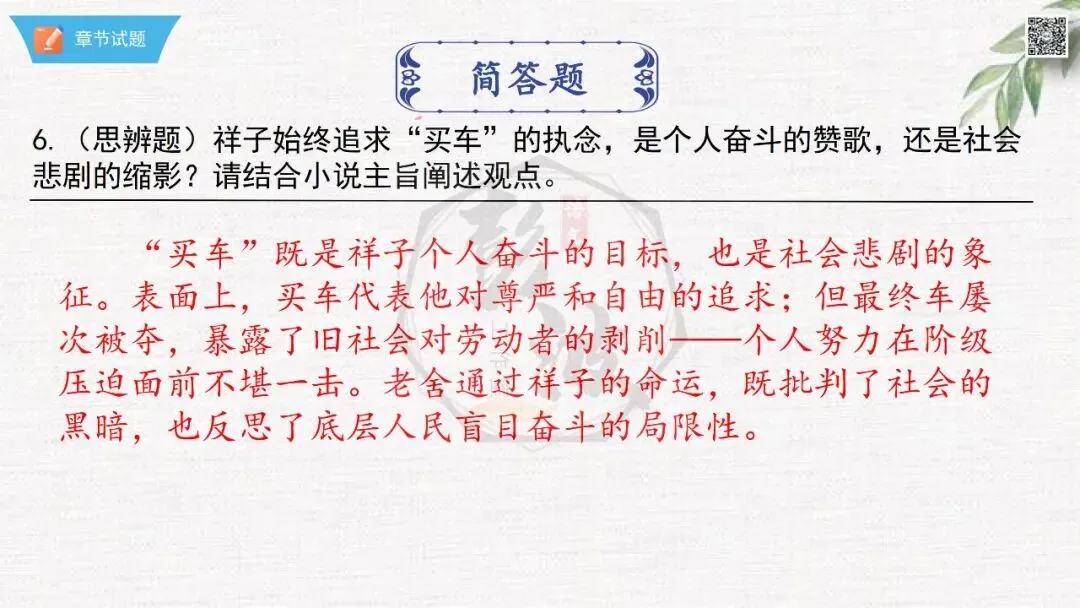 章节试题
简答题
6.（思辨题）祥子始终追求“买车”的执念，是个人奋斗的赞歌，还是社会
悲剧的缩影？请结合小说主旨阐述观点。
“买车”既是祥子个人奋斗的目标，也是社会悲剧的象
征。表面上，买车代表他对尊严和自由的追求；但最终车屡
次被夺，暴露了旧社会对劳动者的剥削——个人努力在阶级
压迫面前不堪一击。老舍通过祥子的命运，既批判了社会的
黑暗，也反思了底层人民盲目奋斗的局限性。